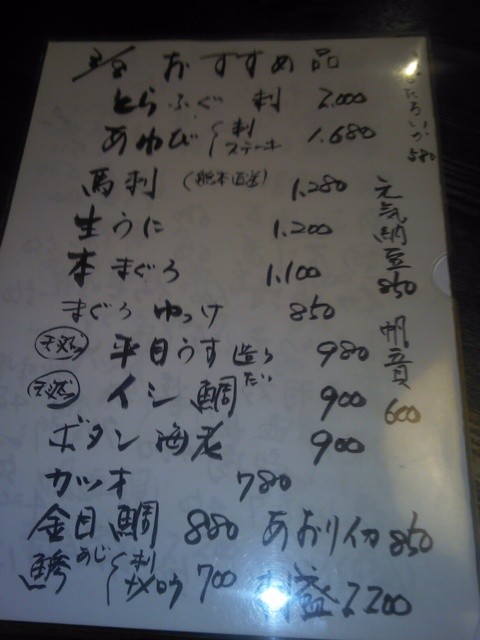 おすすめ品
とらふぐ 刺 2.000
あわび 刺 ステーキ 1.680
馬刺 (熊本直送) 1.280
生うに 1.200
本まぐろ 1.100
まぐろ ゆっけ 850
天然 平目うす造り 980
天然 イシ鯛 だい 900
ボタン海老 900
カツオ 780
金目鯛 880
あおりイカ 850
鯵 あじ 刺 ナメロウ 700
刺盛 2200
ほたるいか 580
元気納豆 850
帆立貝 600